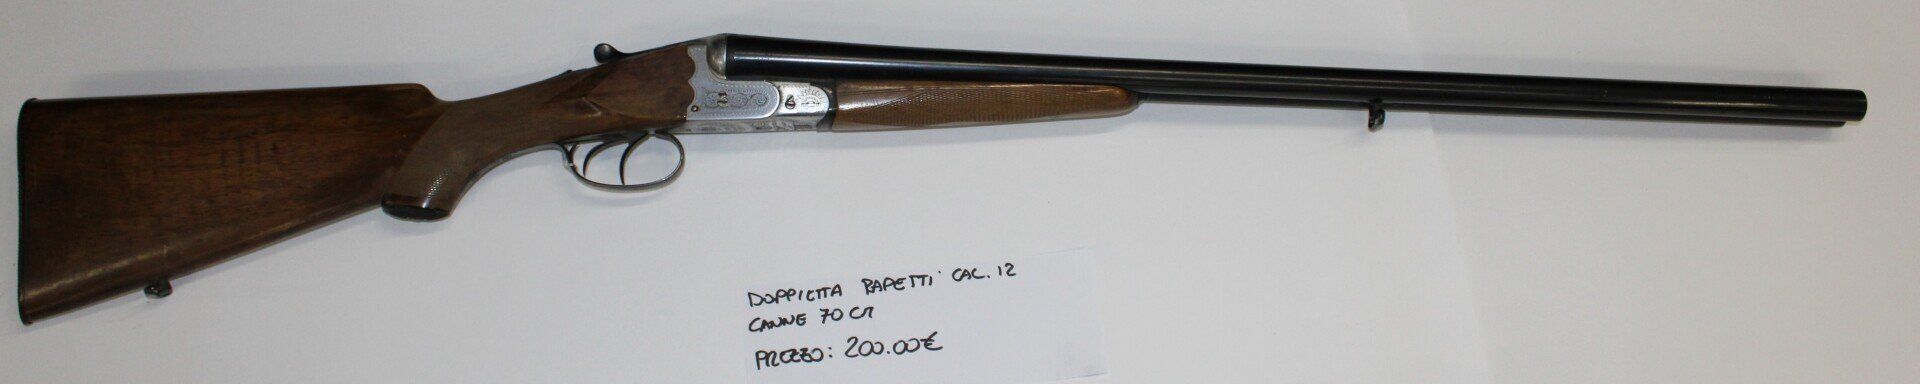 DOPPIETTA RAPETTI CAL. 12
CANNE 70 CM
PREZZO: 200.00€